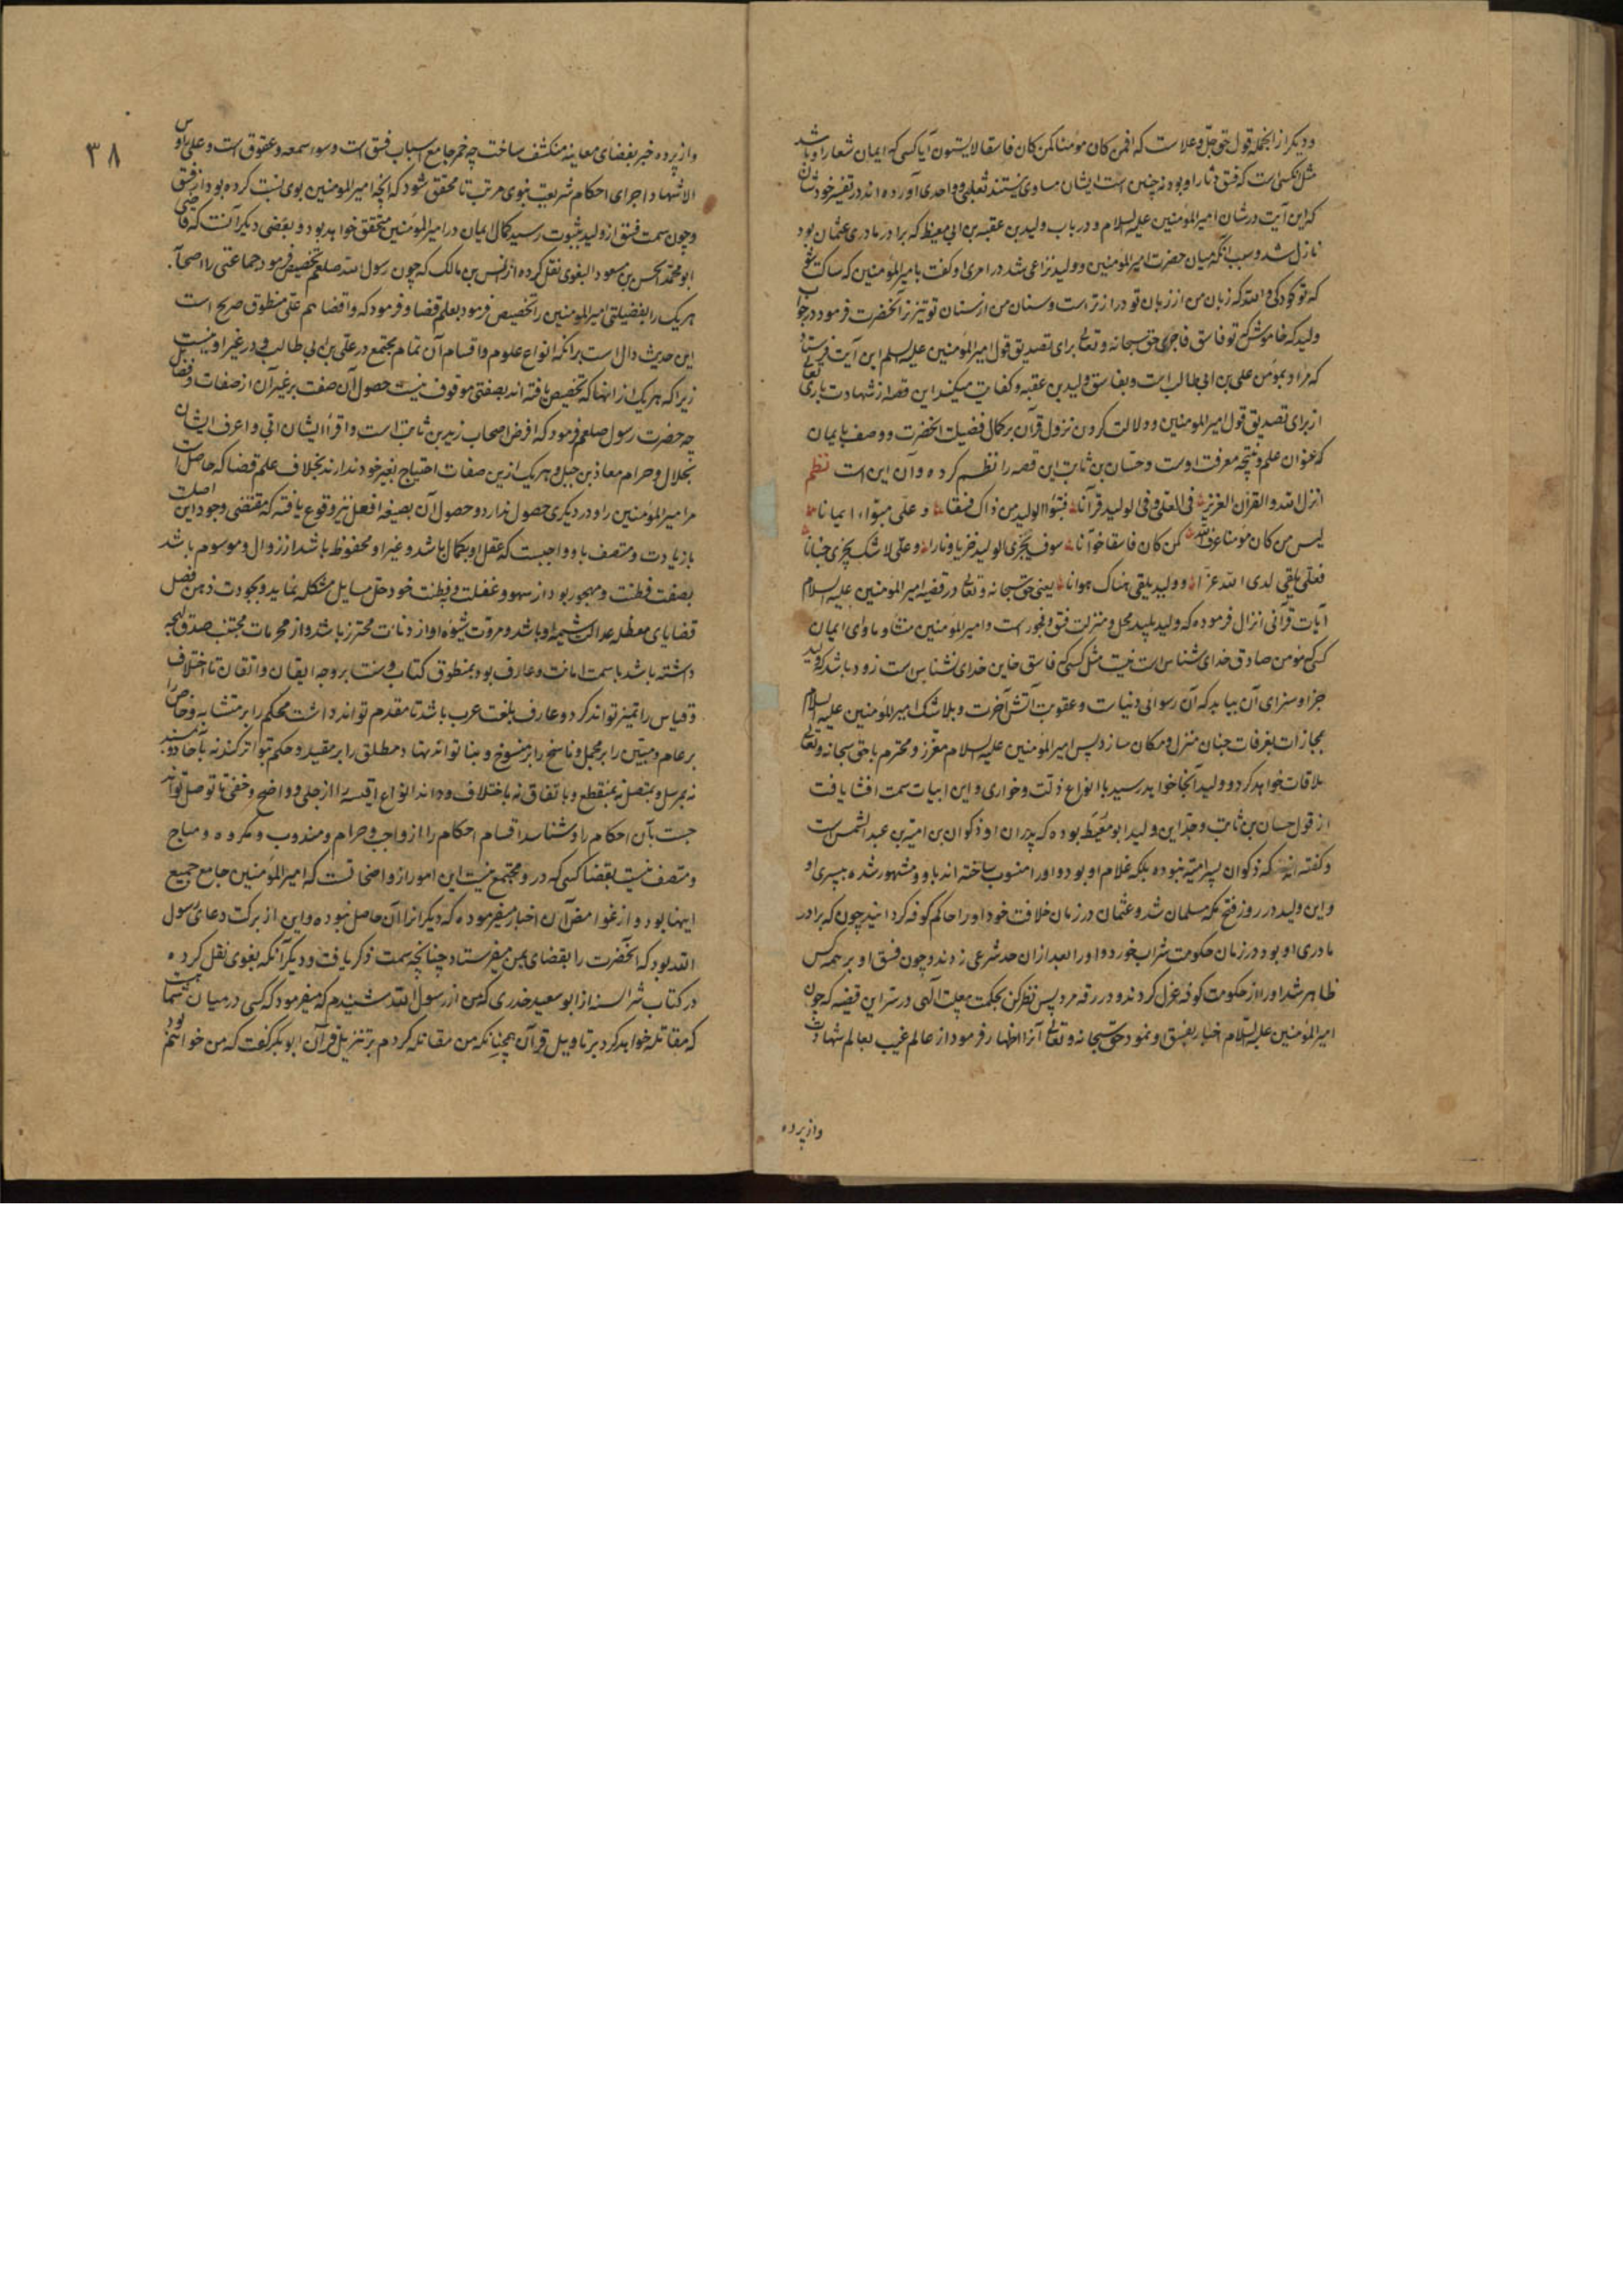 ودیکر ازانجمله قول حق جل وعلاست که افمن کان مؤمنا کمن کان فاسقا لایستون آیا کسی که ایمان شعار او باشد
مثل انکس است که فسق دثار او بود نه چنین است ایشان مساوی نیستند ثعلبی و واحدی آورده اند در تفسیر خودشان
که این آیت درشان امیرالمؤمنین علیه السلام و در باب ولید بن عقبه بن ابی معیط که برادر مادری عثمان بود
نازل شد و سبب آنکه میان حضرت امیرالمؤمنین و ولید نزاعی شد در امری او کفت با میرالمؤمنین که ساکت شو
که تو کودکی و الله که زبان من از زبان تو دراز تر است و سنان من از سنان تو تیزتر آنحضرت فرمود در جواب
ولید که خاموش کن تو فاسق فاجری حق سبحانه وتعالی برای تصدیق قول امیرالمؤمنین علیه السلم این آیت فرستاد
که مراد بمؤمن علی بن ابی طالب است و بفاسق ولید بن عقبه و کفایت میکند این قصه از شهادت باری تعالی
از برای تصدیق قول امیرالمومنین و دلالت کردن نزول قرآن بر کمال فضیلت انحضرت و وصف بایمان
که عنوان علم و نتیجه معرفت اوست و حسّان بن ثابت این قصه را نظم کرده و آن این است نظم
انزل الله والقرآن العزیز فی العلی و فی الولید قرآنا فتبوّأ الولید من ذاک فسقا و علی مبوّاء ایمانا
لیس من کان مؤمنا عرف الله کمن کان فاسقا خوّانا سوف یجزی الولید خزیا و نارا و علی لاشک یجزی جنانا
فعلی یلقی لدی الله عزّا و ولید یلقی هناک هوانا یعنی حق سبحانه وتعالی در قضیه امیرالمؤمنین علیه السلام
آیات قرآنی انزال فرموده که ولید پلید محل و منزلت فسق و فجور است و امیرالمؤمنین منشاء و ماوای ایمان
کسی که مؤمن صادق خدای شناس است نیست مثل کسی که فاسق خاین خدای نشناس است زود باشد که ولید
جزا و سزای آن بیابد که آن رسوائی دنیاست و عقوبت آتش آخرت و بلاشک امیرالمؤمنین علیه السلام
بمجازات بغرفات جنان منزل و مکان سازد پس امیرالمؤمنین علیه السلام معزّز و محترم با حق سبحانه وتعالی
ملاقات خواهد کرد و ولید آنجا خواهد رسید با انواع ذلت و خواری و این ابیات سمت افشا یافت
از قول حسان بن ثابت و جدّ این ولید ابو معیط بوده که پدران او ذکوان بن امیّة بن عبد الشمس است
و کفته اند که ذکوان پسر امیّه نبوده بلکه غلام او بود و او را منسوب ساخته اند باو و مشهور شده بپسری او
واین ولید در روز فتح مکه مسلمان شد و عثمان در زمان خلافت خود او را حاکم کوفه کردانید چون که برادر
مادری او بود و در زمان حکومت شراب خورد و او را بعد ازان حد شرعی زدند و چون فسق او بر همه کس
ظاهر شد او را از حکومت کوفه عزل کردند و در رقه مرد پس نظر کن بحکمت الهی در ستر این قضیه که چون
امیرالمؤمنین علیه السلام اخبار بفسق او نمود حق سبحانه وتعالی آنرا اظهار فرمود از عالم غیب بعالم شهادت
واز پرده
٣٨
واز پرده خبر بفضای معاینه منکشف ساخت چه خمر جامع اسباب فسق است و سوء سمعه و عقوق است و علی رؤس
الاشهاد اجرای احکام شریعت نبوی مرتب تا محقق شود که انچه امیرالمومنین بوی نسبت کرده بود از فسق
وچون سمت فسق از ولید بثبوت رسید کمال ایمان در امیرالمؤمنین محقق خواهد بود و بعضی دیکر آنست که قاضی
ابو محمد الحسن بن مسعود البغوی نقل کرده از انس بن مالک که چون رسول الله صلعم تخصیص فرمود جماعتی را از صحآبه
هر یک را بفضیلتی امیرالمومنین را تخصیص فرمود بعلم قضا و فرمود که واقضاهم علی منطوق صریح است
این حدیث دال است برانکه انواع علوم و اقسام آن تمام مجتمع در علی بن ابی طالب و در غیر او نیست
زیرا که هر یک از انها که تخصیص یافته اند بصفتی موقوف نیست حصول آن صفت بر غیر آن از صفات و فضایل
چه حضرت رسول صلعم فرمود که افرض اصحاب زید بن ثابت است و اقرأ ایشان ابیّ و اعرف ایشان
بحلال و حرام معاذ بن جبل و هر یک ازین صفات احتیاج بغیر خود ندارند بخلاف علم قضا که حاصل است
مر امیرالمؤمنین را و در دیکری حصول ندارد و حصول آن بصیغه افعل نیز وقوع یافته که مقتضی وجود این اصلست
با زیادت و متصف باو واجبست که عقل او بکمال باشد و غیر او محفوظ باشد از زوال و موسوم باشد
بصفت فطنت و مهجور بود از سهو و غفلت و بفطنت خود حل مسایل مشکله نماید و بجودت ذهن فصل
قضایای معضله عدالت شیمه او باشد و مروّت شیوه او از دنائت محترز باشد و از محرمات مجتنب صدق لهجه
داشته باشد با سمت امانت و عارف بود بمنطوق کتاب و سنت بر وجه ایقان و اتقان تا اختلاف
و قیاس را تمیز تواند کرد و عارف بلغت عرب باشد تا مقدم تواند داشت محکم را بر متشابه و خاص را
بر عام و مبیّن را بر مجمل و ناسخ را بر منسوخ و بنا تواند نهاد مطلق را بر مقید و حکم بتواتر کند نه بآحاد و بمسند
نه بمرسل و بمتصل نه بمنقطع و باتفاق نه باختلاف و داند انواع اقیسه را از جلی و واضح و خفی تا توصل تواند
جست بآن احکام را و شناسد اقسام احکام را از واجب و حرام و مندوب و مکروه و مباح
و متصف نیست بقضا کسی که درو مجتمع نیست این امور از واضحاتست که امیرالمؤمنین جامع جمیع
اینها بود و از غوامض آن اخبار میفرموده که دیکرانرا آن حاصل نبوده و این از برکت دعای رسول
الله بود که آنحضرت را بقضای یمن میفرستاد چنانچه سمت ذکر یافت و دیکر آنکه بغوی نقل کرده
در کتاب شرح السنه از ابو سعید خدری که من از رسول الله شنیدم که میفرمود که کسی در میان شما هست
که مقاتله خواهد کرد بر تاویل قرآن همچنانکه من مقاتله کردم بر تنزیل قرآن ابوبکر کفت که من خواهم بود